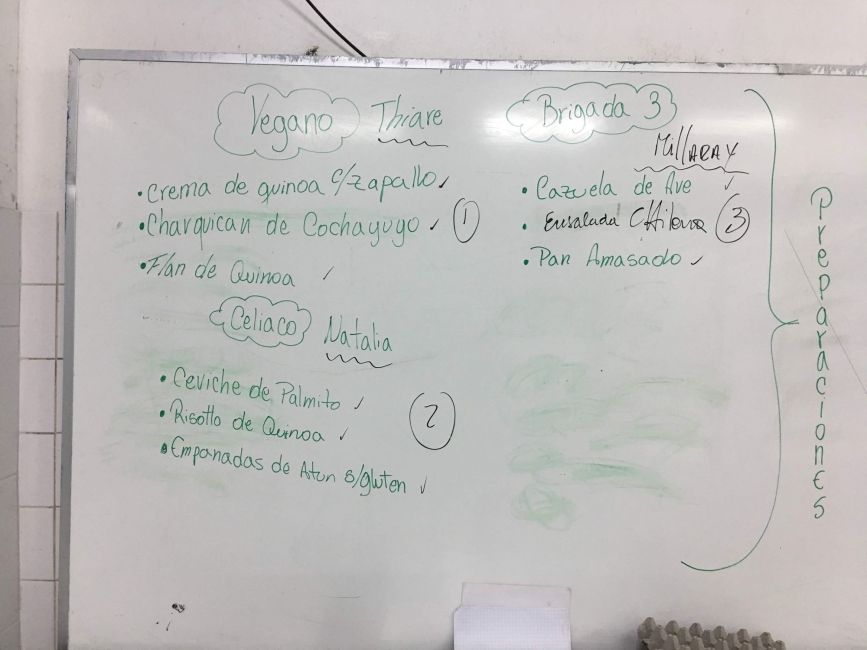 Vegano Thiare
• Crema de quinoa c/zapallo ✓
• Charquican de Cochayugo ✓ ①
• Flan de Quinoa ✓
Celiaco Natalia
• Ceviche de Palmito ✓
• Risotto de Quinoa ✓
• Empanadas de Atun s/gluten ✓
②
Brigada 3
Millaray
• Cazuela de Ave ✓
• Ensalada Chilena ③
• Pan Amasado ✓
Preparaciones